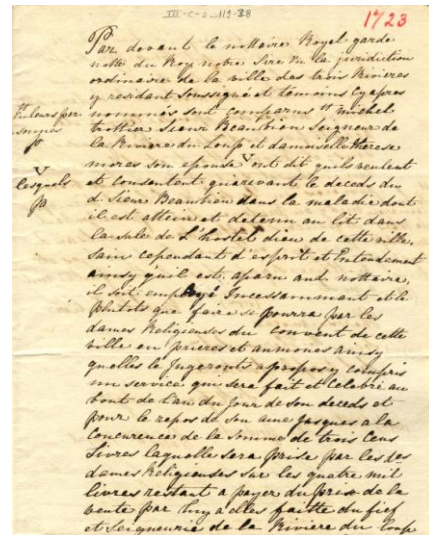 III-C-2-112-38
1723
Par devant le nottaire Royal garde
notte du Roy notre Sire en la juridiction
ordinaire de la ville des trois Rivieres
y residant Soussigné et témoins Cy apres
nommés sont comparus Sr michel
trottier Sieur Beaubien Seigneur de
la Riviere du Loup et damoiselle therese
mores son epouse ont dit quils veulent
et consentent qu'arivant le deceds du
d. Sieur Beaubien dans la maladie dont
il est attein et detenu au lit dans
la sale de L'hostel dieu de cette ville,
sain cependant d'esprit et Entendement
ainsy qu'il est aparu aud. nottaire,
il soit employé Incessamment et le
plutots que faire se pourra par les
dames Religieuses du convent de cette
ville en prieres et aumones ainsy
quelles le Jugeronts apropos y compris
un service qui sera fait et Celebré au
bout de l'an du Jour de son deceds et
pour le repos de son ame Jusques a la
concurence de la Somme de trois Cens
Livres laquelle sera prise par les des
dames Religieuses sur les quatre mil
livres restant a payer du prix de la
vente par luy a elles faitte du fief
et Seigneurie de la Riviere du Loup
en leurs per
sonnes
lesquels